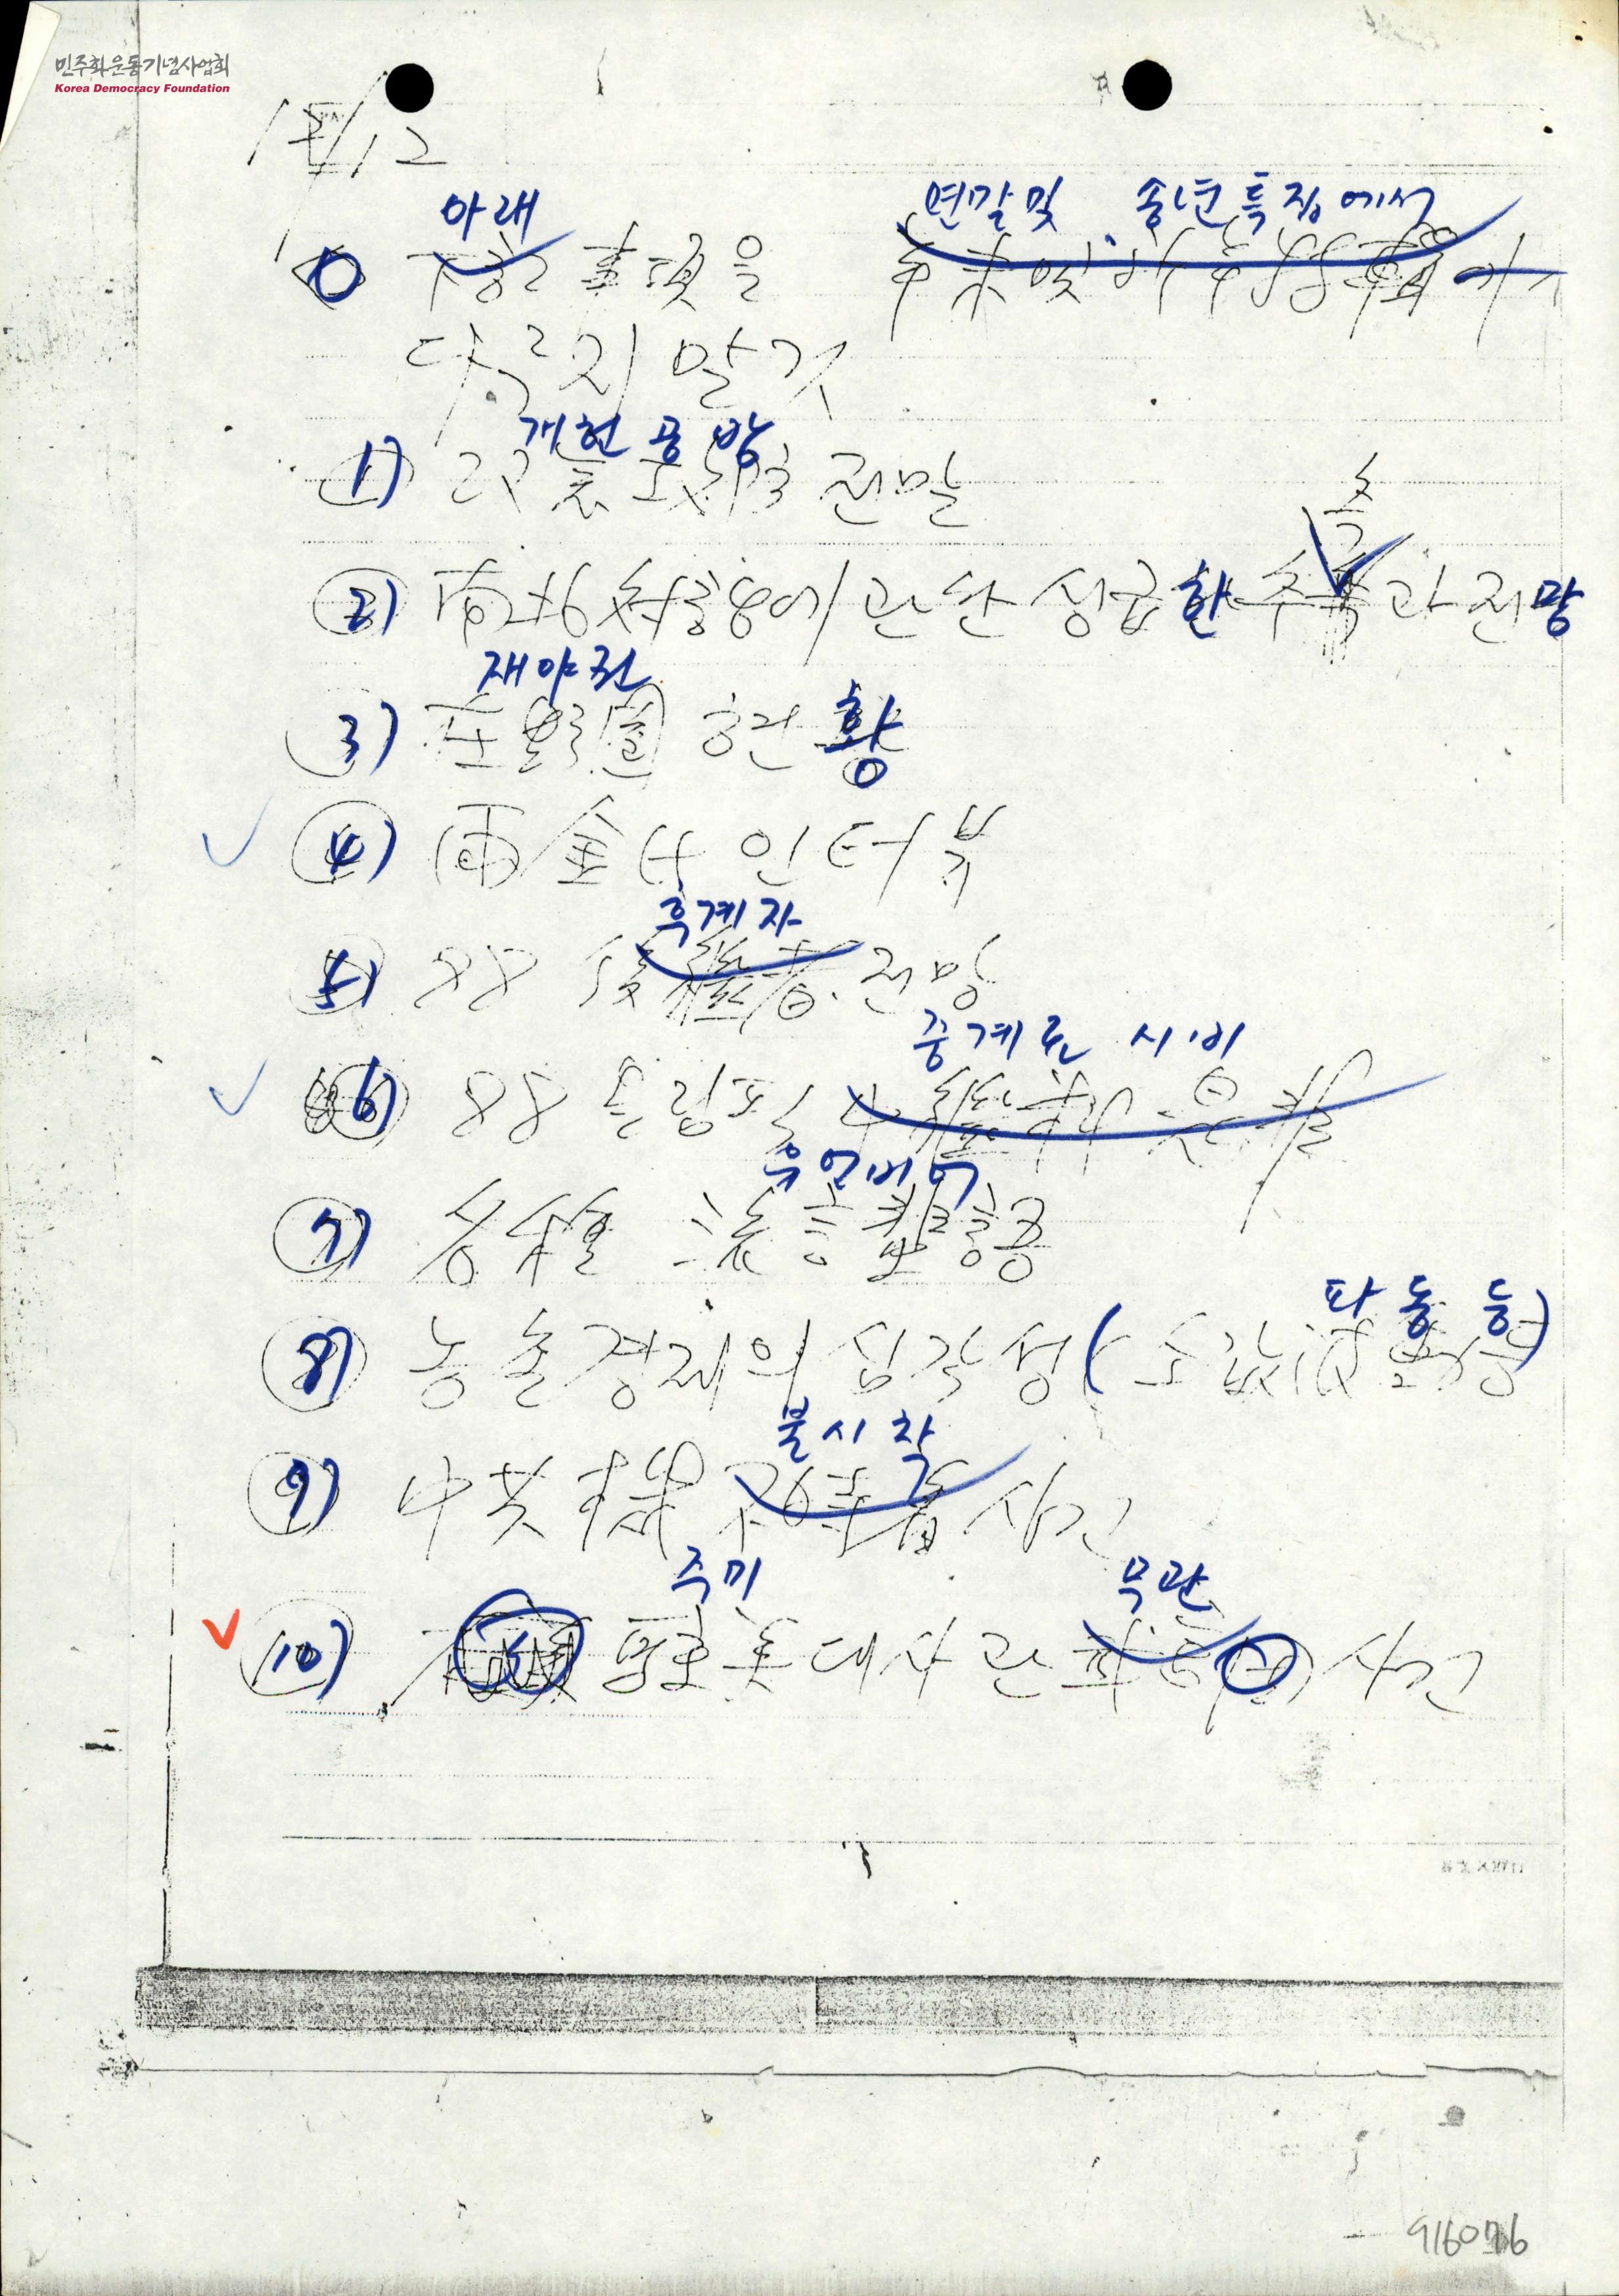 민주화운동기념사업회
Korea Democracy Foundation
12
아래 연말및 송년특집에서
事項을
다루지 말것
개헌공방
1) 전말
측
2) 南北対話에 관한 성급한 추측과 전망
재야권
3) 在野圈 현황
4) 両金 인터뷰
후계자
5) 88 後継者 전망
중계료 시비
6) 88 올림픽 中継料 是非
유언비어
7) 各種 流言蜚語
파동등)
8) 농촌경제의 심각성( 소값波動등
불시착
9) 中共機 不時着 사건
주미 무관
10) 駐美대사관 武官 사건
916076